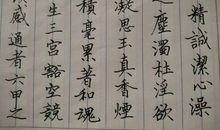 精誠潔心澡
之塵濁杜淫欲
凝思玉真香煙
積毫累著和魂
生三宫豁空競
威通者六甲之